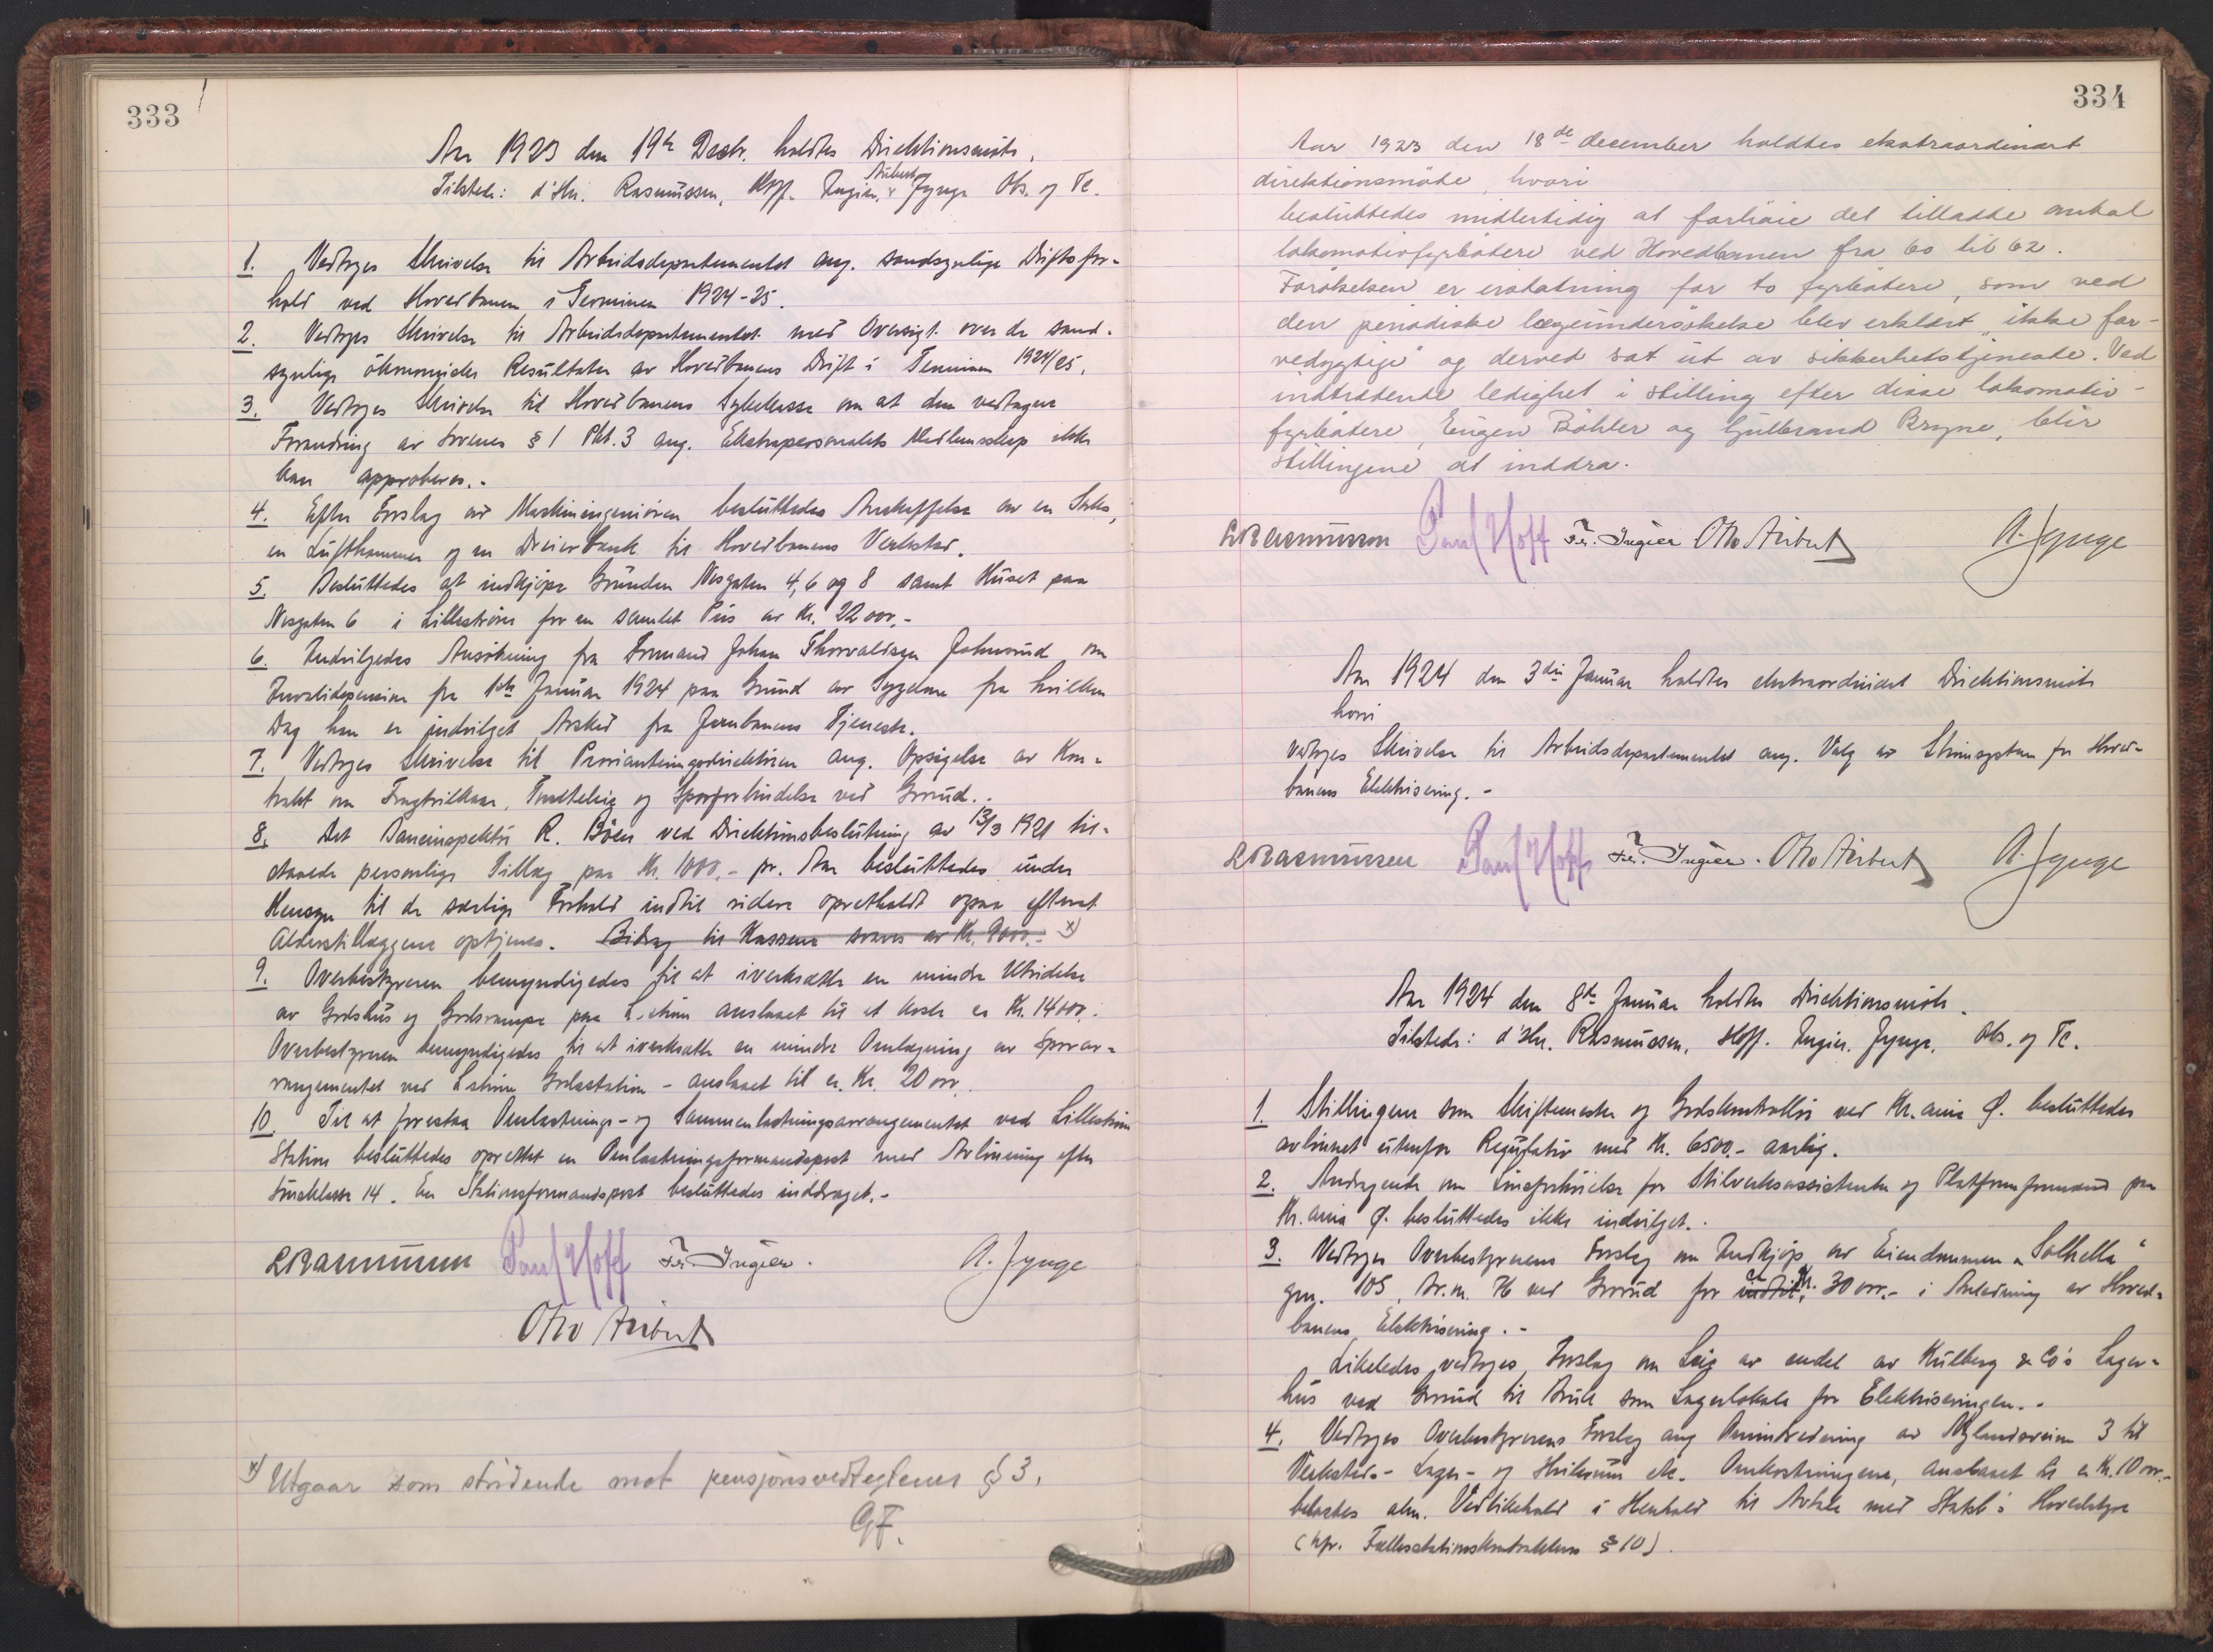 333
Aar 1923 den 19de Decbr. holdtes Direktionsmöte.
Tilstede: d'Hrr. Rasmussen, Hoff, Ingier, Airbert og Jynge Obs. og Tc.
1. Vedtoges Skrivelse til Arbeidsdepartementet ang. sandsynlige Driftsfor-
hold ved Hovedbanen i Terminen 1924-25.
2. Vedtoges Skrivelse til Arbeidsdepartementet med Oversigt over de sand-
synlige ökonomiske Resultater av Hovedbanens Drift i Terminen 1924/25.
3. Vedtoges Skrivelse til Hovedbanens Sykekasse om at den vedtagne
Forandring av Lovenes § 1 Pkt. 3 ang. Ekstrapersonalets Medlemsskap ikke
kan approberes.-
4. Efter Forslag av Maskiningeniören besluttedes Anskaffelse av en Saks,
en Lufthammer og en Dreierbænk til Hovedbanens Verksted.
5. Besluttedes at indkjöpe Grunden Nesgaten 4, 6 og 8 samt Huset paa
Nesgaten 6 i Lilleström for en samlet Pris av Kr. 22000.-
6. Indvilgedes Ansökning fra Formand Johan Thorvaldsen Johnsrud om
Invalidepension fra 1ste Januar 1924 paa Grund av Sygdom fra hvilken
Dag han er indvilget Avsked fra Jernbanens Tjeneste.
7. Vedtoges Skrivelse til Provianteringsdirektören ang. Opsigelse av Kon-
trakt om Fragtvilkaar, Tomteleie og Sporforbindelse ved Grorud.-
8. Det Baneinspektör R. Böen ved Direktionsbeslutning av 13/3 1921 til-
staaede personlige Tillæg paa Kr. 1000.- pr. Aar besluttedes under
Hensyn til de særlige Forhold indtil videre opretholdt ogsaa efterat
Alderstillæggene optjenes. Bidrag til Kassene svares av Kr. 9000.- x)
9. Overbestyreren bemyndigedes til at iverksætte en mindre Utvidelse
av Godshus og Godsrampe paa L.ström anslaaet til at koste ca Kr. 14000.-
Overbestyreren bemyndigedes til at iverksætte en mindre Omlægning av Sporar-
rangementet ved L.ström Godsstation - anslaaet til ca. Kr. 20000.
10. Til at forestaa Omlastnings- og Sammenlastningsarrangementet ved Lilleström
Station besluttedes oprettet en Omlastningsformandspost med Avlönning efter
Löneklasse 14. En Stationsformandspost besluttedes inddraget.-
L Rasmussen Paul Hoff Fr. Ingier. A. Jynge
Otto Airbert
x) Utgaar som stridende mot pensjonsvedtegtenes § 3.
GF.
334
Aar 1923 den 18de december holdtes ekstraordinært
direktionsmöte, hvori
besluttedes midlertidig at forhöie det tilladte antal
lokomotivfyrbötere ved Hovedbanen fra 60 til 62.
Forökelsen er erstatning for to fyrbötere, som ved
den periodiske lægeundersökelse blev erklært "ikke far-
vedygtige" og derved sat ut av sikkerhetstjeneste. Ved
indtrædende ledighet i stilling efter disse lokomotiv-
fyrbötere, Eugen Böhler og Gulbrand Bryne, blir
stillingene at inddra.
L Rasmussen Paul Hoff Fr. Ingier Otto Airbert A. Jynge
Aar 1924 den 3die Januar holdtes ekstraordinært Direktionsmöte
hvori
vedtoges Skrivelse til Arbeidsdepartementet ang. Valg av Strömsystem for Hoved-
banens Elektrisering.-
L Rasmussen Paul Hoff Fr. Ingier. Otto Airbert A. Jynge
Aar 1924 den 8de Januar holdtes Direktionsmöte.
Tilstede: d'Hrr. Rasmussen, Hoff, Ingier, Jynge, Obs. og Tc.
1. Stillingene som Skiftemester og Godskontrollör ved Kr.ania Ö. besluttedes
avlönnet utenfor Regulativ med Kr. 6500.- aarlig.
2. Andragende om Lönsforhöielse for Stilverksassistenter og Platformformand paa
Kr.ania Ö. besluttedes ikke indvilget.-
3. Vedtoges Overbestyrerens Forslag om Indkjöp av Eiendommen "Solhella"
gnr. 105, br.nr. 76 ved Grorud for indtil ca Kr. 30000.- i Anledning av Hoved-
banens Elektrisering.-
Likeledes vedtoges Forslag om Leie av endel av Kulberg & Co's Lager-
hus ved Grorud til Bruk som Lagerlokale for Elektriseringen.-
4. Vedtoges Overbestyrerens Forslag ang Omindredning av Nylandsveien 3 til
Verksted- Lager- og Hvilerum etc. Omkostningene, anslaaet til ca Kr. 10000.-
belastes alm. Vedlikehold i Henhold til Avtale med Statsb's Hovedstyre
(kfr. Fællesstationskontrakten § 10).